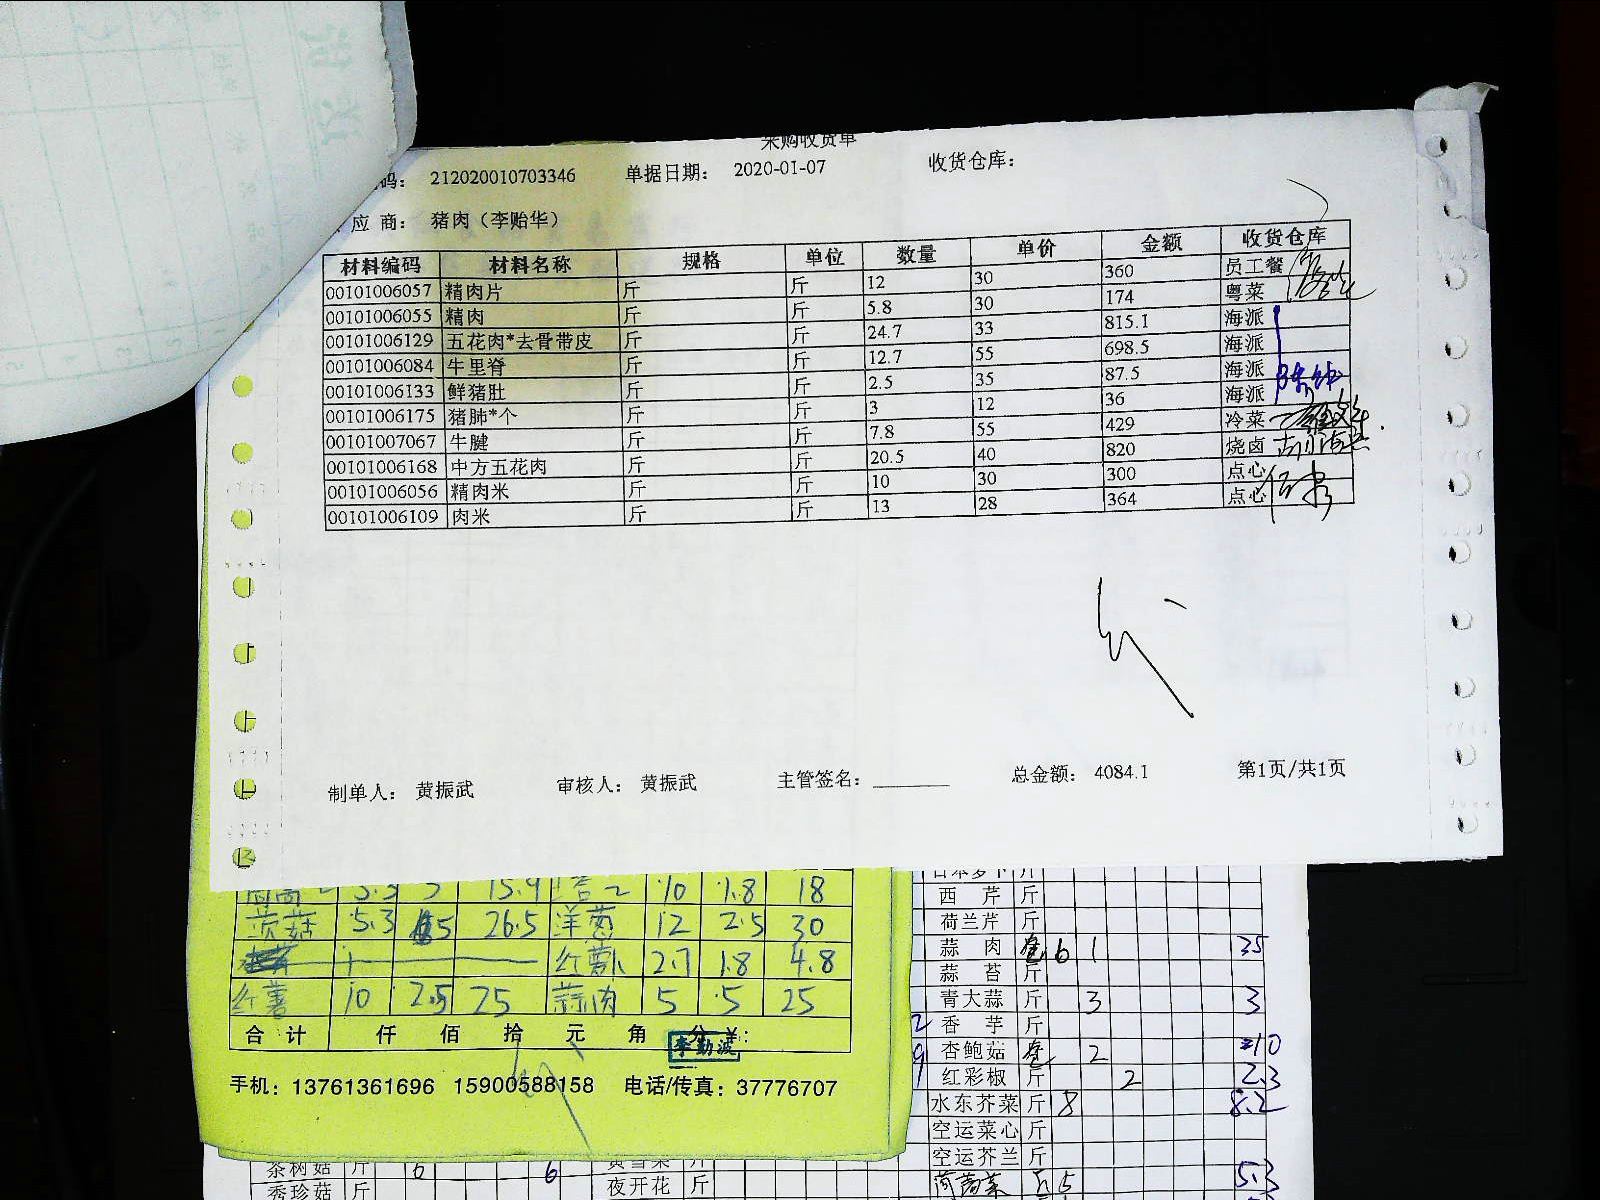 采购收货单
码: 212020010703346 单据日期: 2020-01-07 收货仓库:
应 商: 猪肉（李贻华）
材料编码 材料名称 规格 单位 数量 单价 金额 收货仓库
00101006057 精肉片 斤 斤 12 30 360 员工餐
00101006055 精肉 斤 斤 5.8 30 174 粤菜
00101006129 五花肉*去骨带皮 斤 斤 24.7 33 815.1 海派
00101006084 牛里脊 斤 斤 12.7 55 698.5 海派
00101006133 鲜猪肚 斤 斤 2.5 35 87.5 海派
00101006175 猪肺*个 斤 斤 3 12 36 海派
00101007067 牛腱 斤 斤 7.8 55 429 冷菜
00101006168 中方五花肉 斤 斤 20.5 40 820 烧卤
00101006056 精肉米 斤 斤 10 30 300 点心
00101006109 肉米 斤 斤 13 28 364 点心
制单人: 黄振武 审核人: 黄振武 主管签名: 总金额: 4084.1 第1页/共1页
15.9 10 1.8 18
茨菇 5.3 5 26.5 洋葱 12 2.5 30
红萝卜 2.7 1.8 4.8
红薯 10 2.5 25 蒜肉 5 5 25
合计 仟 佰 拾 元 角 分 ¥:
李勤波
手机: 13761361696 15900588158 电话/传真: 37776707
西芹 斤
荷兰芹 斤
蒜肉 6 1 35
蒜苔 斤
青大蒜 斤 3 3
香芋 斤
杏鲍菇 2 10
红彩椒 斤 2 2.3
水东芥菜 斤 8 8.2
空运菜心 斤
空运芥兰 斤
5 5.3
茶树菇 斤 6 6
秀珍菇 斤 夜开花 斤